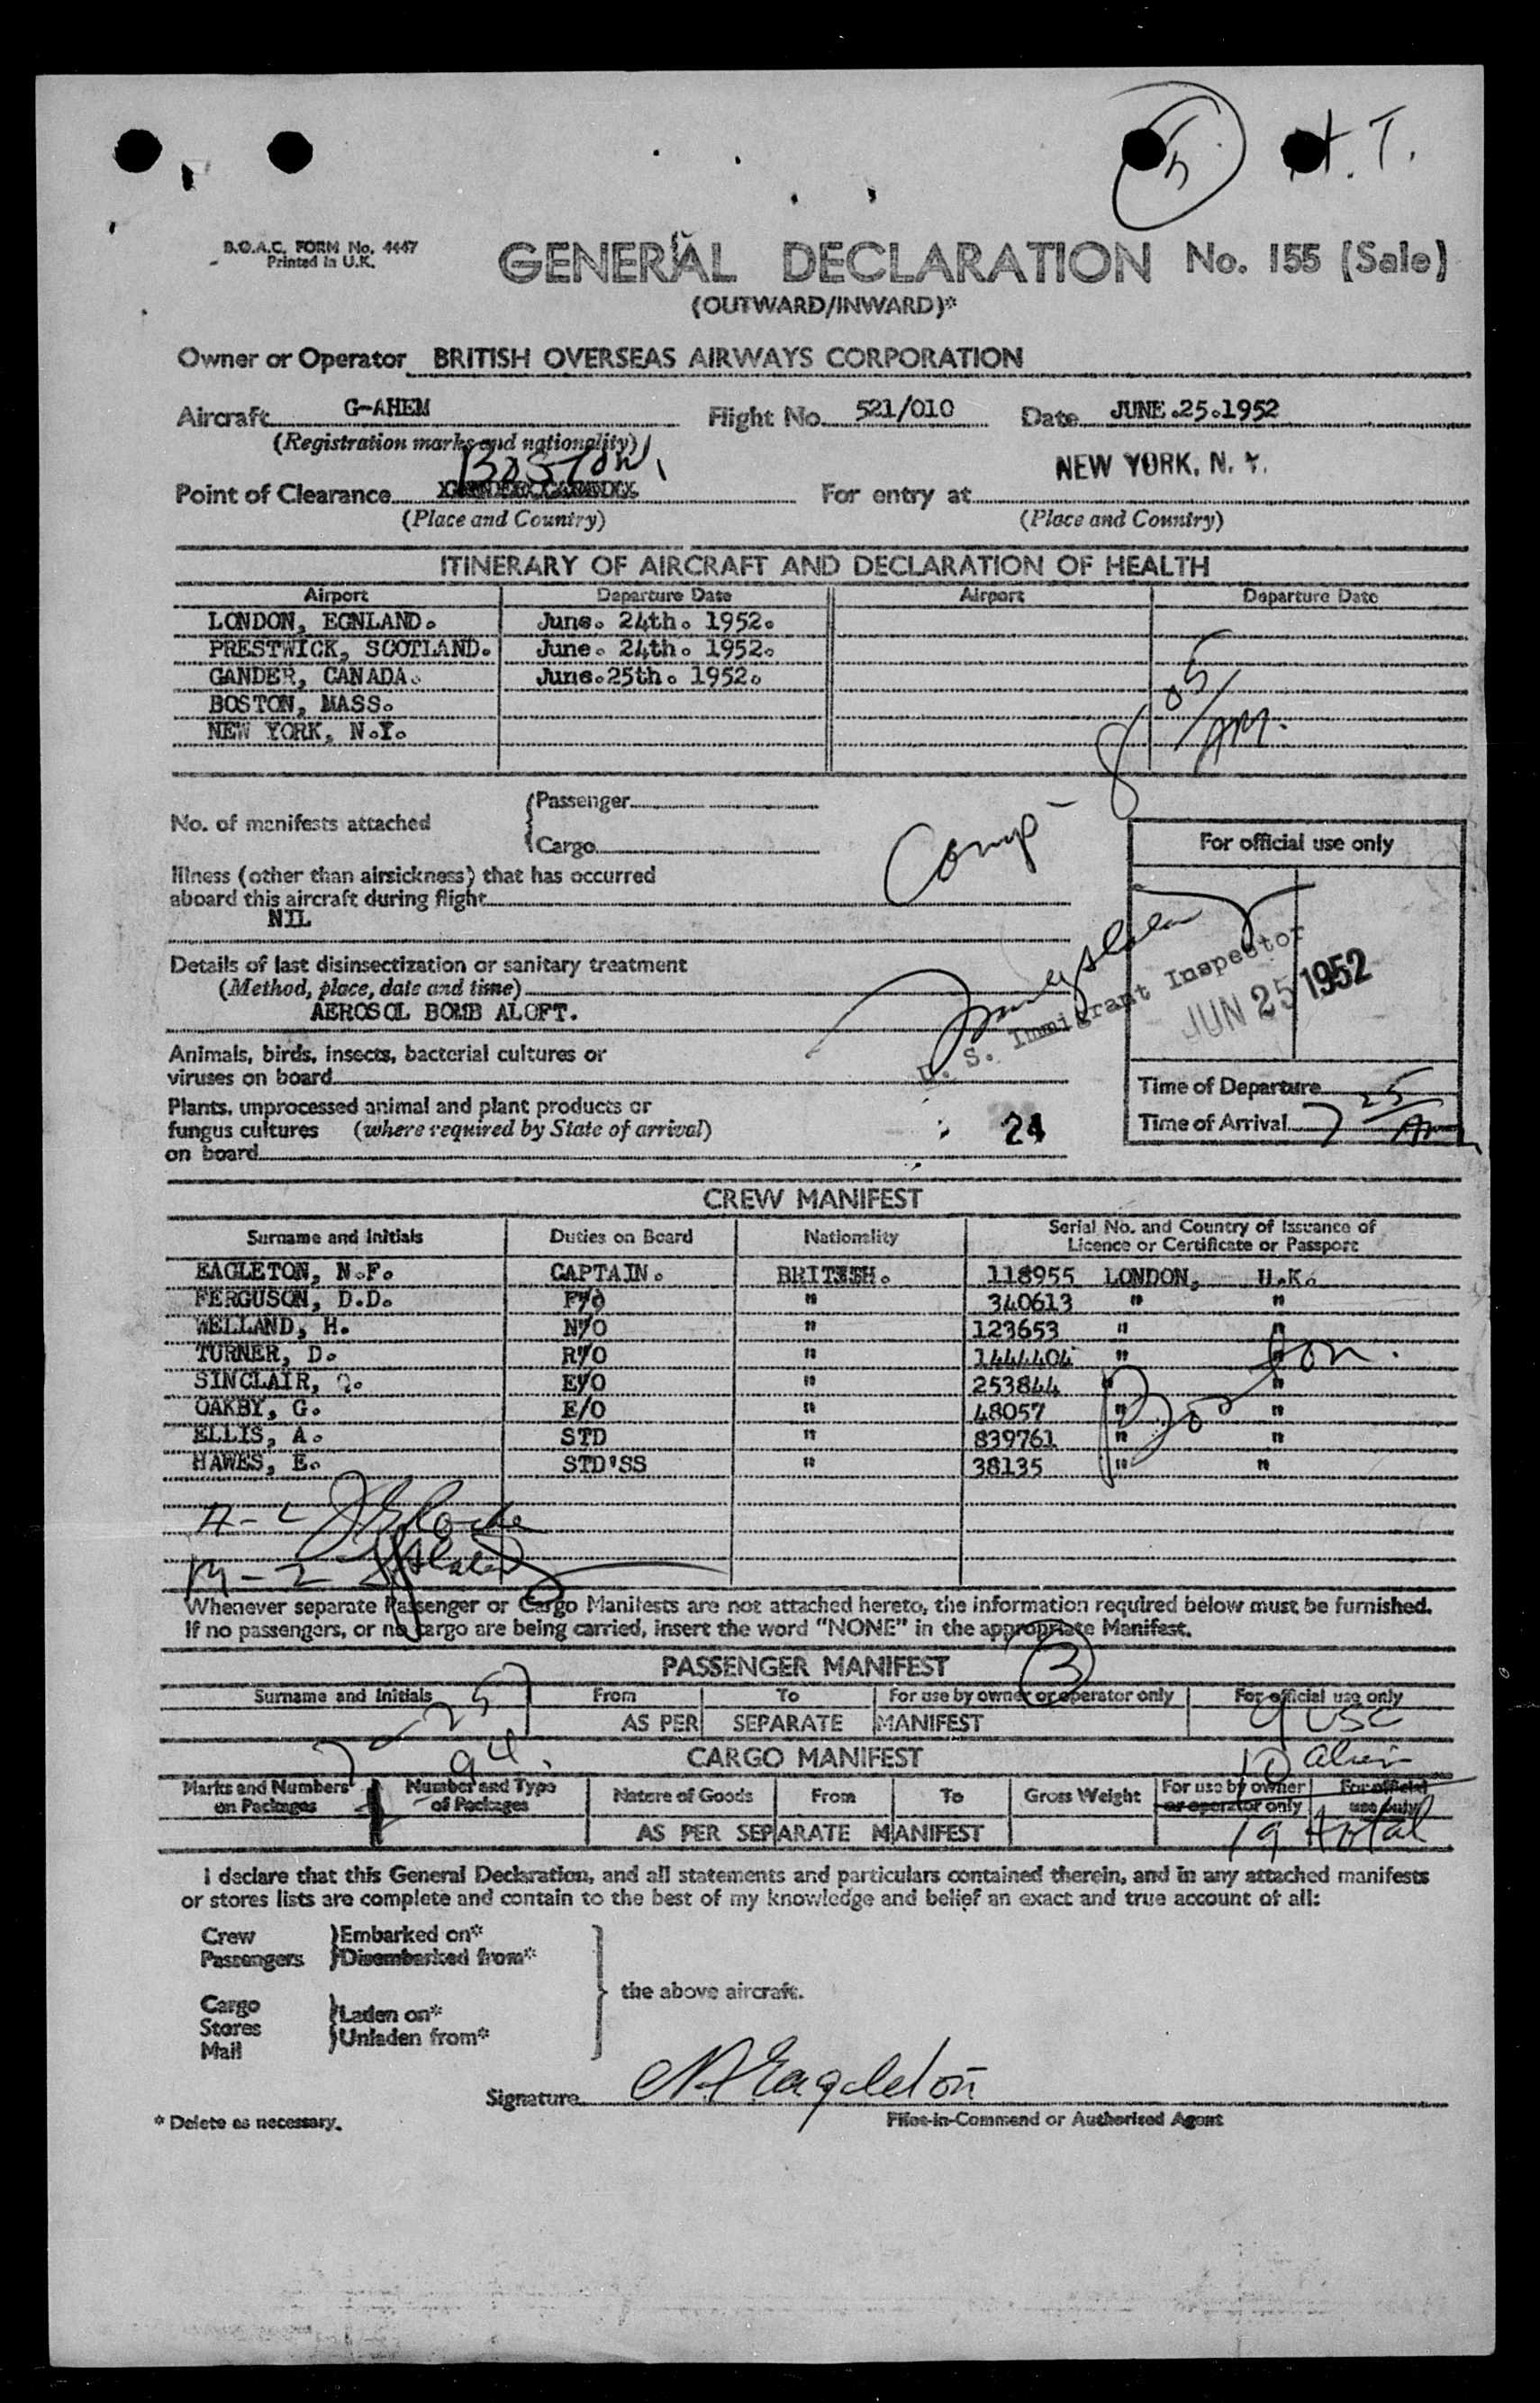 H. T.
B.O.A.C. FORM No. 4447
Printed in U.K.
GENERAL DECLARATION No. 155 (Sale)
(OUTWARD/INWARD)*
Owner or Operator BRITISH OVERSEAS AIRWAYS CORPORATION
Aircraft G-AHEM Flight No. 521/010 Date JUNE.25.1952
(Registration marks and nationality)
Boston, NEW YORK, N. Y.
Point of Clearance For entry at
(Place and Country) (Place and Country)
ITINERARY OF AIRCRAFT AND DECLARATION OF HEALTH
Airport Departure Date Airport Departure Date
LONDON, EGNLAND. June. 24th. 1952.
PRESTWICK, SCOTLAND. June. 24th. 1952.
GANDER, CANADA. June.25th. 1952.
BOSTON, MASS.
NEW YORK, N.Y.
Comp - 8 05/AM.
No. of manifests attached
Passenger
Cargo
For official use only
Illness (other than airsickness) that has occurred
aboard this aircraft during flight
NIL
Details of last disinsectization or sanitary treatment
(Method, place, date and time)
AEROSOL BOMB ALOFT.
U. S. Immigrant Inspector
JUN 25 1952
Animals, birds, insects, bacterial cultures or
viruses on board
Time of Departure
Plants, unprocessed animal and plant products or
fungus cultures (where required by State of arrival)
on board
24
Time of Arrival 7 25/Am
CREW MANIFEST
Surname and Initials Duties on Board Nationality Serial No. and Country of Issuance of
Licence or Certificate or Passport
EAGLETON, N.F. CAPTAIN. BRITISH. 118955 LONDON, U.K.
FERGUSON, D.D. F/O " 340613 " "
WELLAND, H. N/O " 123653 " "
TURNER, D. R/O " 1444404 " "
SINCLAIR, E/O " 253844 " "
OAKBY, G. E/O " 48057 " "
ELLIS, A. STD " 839761 " "
HAWES, E. STD'SS " 38135 " "
Boston.
Whenever separate Passenger or Cargo Manifests are not attached hereto, the information required below must be furnished.
If no passengers, or no cargo are being carried, insert the word "NONE" in the appropriate Manifest.
PASSENGER MANIFEST
3
Surname and Initials From To For use by owner or operator only For official use only
AS PER SEPARATE MANIFEST 9 USC
7 - 25
94. CARGO MANIFEST 10 alien
Marks and Numbers on Packages Number and Type of Packages Nature of Goods From To Gross Weight For use by owner or operator only For official use only
AS PER SEPARATE MANIFEST 19 total
I declare that this General Declaration, and all statements and particulars contained therein, and in any attached manifests
or stores lists are complete and contain to the best of my knowledge and belief an exact and true account of all:
Crew Embarked on*
Passengers Disembarked from*
the above aircraft.
Cargo Laden on*
Stores Unladen from*
Mail
Signature N F Eagleton
* Delete as necessary. Pilot-in-Command or Authorised Agent